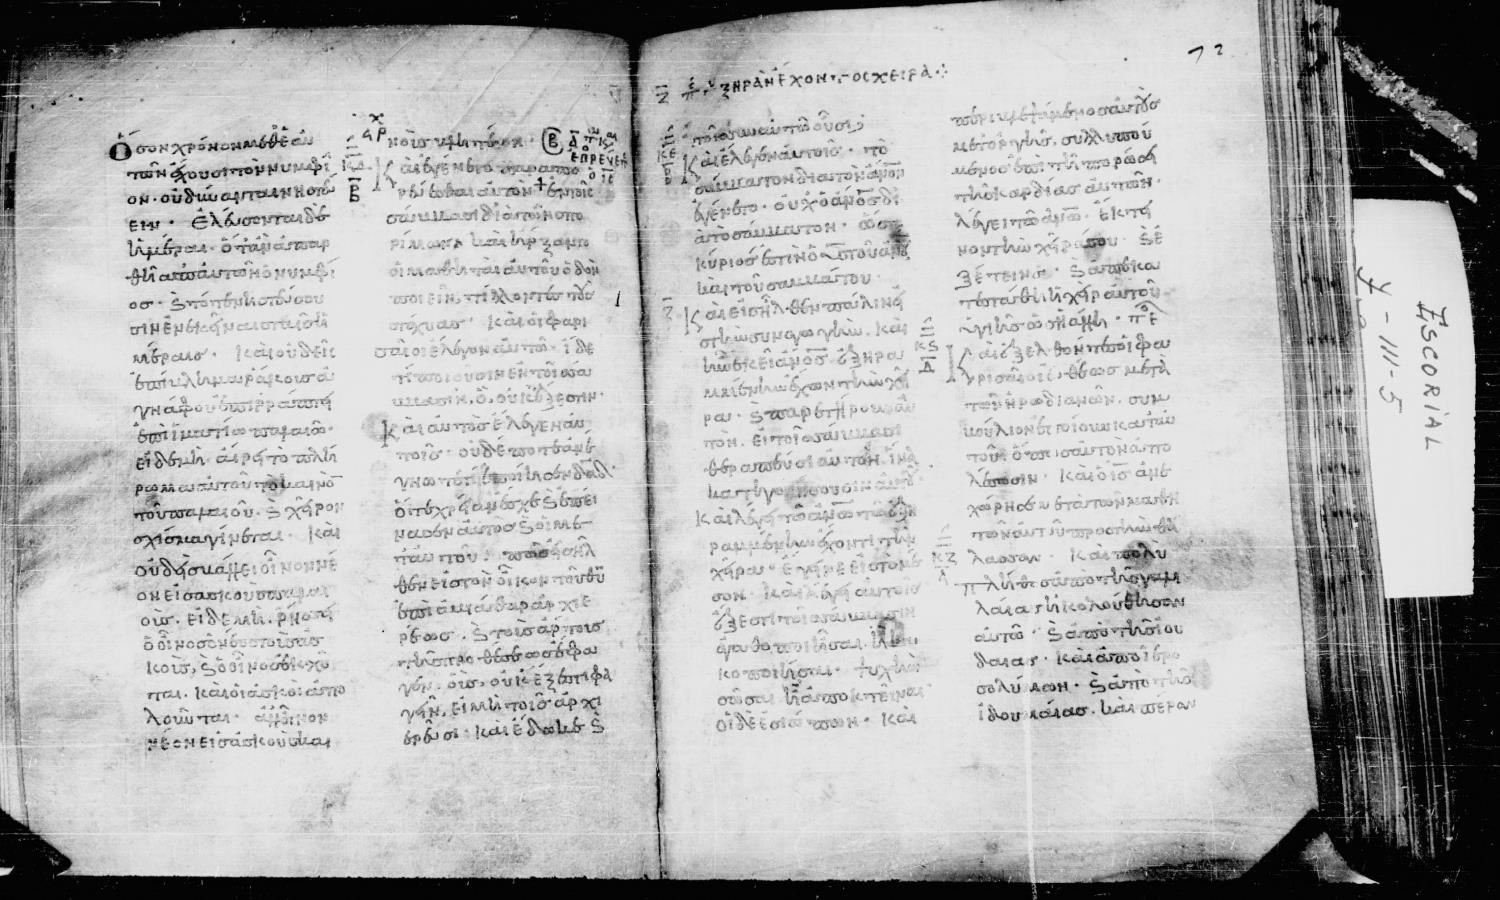 ὅσον χρόνον μεθ' ἑαυ
τῶν ἔχουσι τὸν νυμφί
ον · οὐ δύνανται νηστεύ
ειν · Ἐλεύσονται δὲ
ἡμέραι · ὅταν ἀπαρ
θῆ ἀπ' αὐτῶν ὁ νυμφί
ος · καὶ τότε νηστεύσου
σιν ἐν ἐκείναις ταῖς ἡ
μέραις · Καὶ οὐδεὶς
ἐπίβλημα ῥάκους ἀ
γνάφου ἐπιρράπτει
ἐπὶ ἱματίω παλαιῶ ·
εἰ δὲ μὴ αἴρει τὸ πλή
ρωμα αὐτοῦ τὸ καινὸν
τοῦ παλαιοῦ · καὶ χεῖρον
σχίσμα γίνεται · Καὶ
οὐδεὶς βάλλει οἶνον νέ
ον εἰς ἀσκοὺς παλαι
οὺς · εἰ δὲ μὴ, ῥήσσει
ὁ οἶνος ὁ νέος τοὺς ἀσ
κούς, καὶ ὁ οἶνος ἐκχεῖ
ται. καὶ οἱ ἀσκοὶ ἀπο
λοῦνται · ἀλλ' οἶνον
νέον εἰς ἀσκοὺς και
νοὺς βλητέον ·
Καὶ ἐγένετο παραπο
ρεύεσθαι αὐτὸν + ἐν τοῖς
σάββασι διὰ τῶν σπο
ρίμων · καὶ ἤρξαντο
οἱ μαθηταὶ αὐτοῦ ὁδὸν
ποιεῖν, τίλλοντες τοὺς
στάχυας · Καὶ οἱ φαρι
σαῖοι ἔλεγον αὐτῶ · ἴδε
τί ποιοῦσιν ἐν τοῖς σά
ββασιν, ὃ οὐκ ἔξεστιν ·
Καὶ αὐτὸς ἔλεγεν αὐ
τοῖς · οὐδέποτε ἀνέ
γνωτε τί ἐποίησεν δαδ
ὅτε χρείαν ἔσχε καὶ ἐπεί
νασεν αὐτὸς καὶ οἱ με
τ' αὐτοῦ · πῶς εἰσῆλ
θεν εἰς τὸν οἶκον τοῦ θυ
ἐπὶ ἀβιάθαρ ἀρχιε
ρέως · καὶ τοὺς ἄρτους
τῆς προθέσεως ἔφα
γεν · οὓς οὐκ ἔξεστι φα
γεῖν, εἰ μὴ τοῖς ἀρχι
ερεῦσι · καὶ ἔδωκε καὶ
ξηρὰν ἔχοντος χεῖρα
τοῖς σὺν αὐτῶ οὖσι;
Καὶ ἔλεγεν αὐτοῖς · τὸ
σάββατον διὰ τὸν ανον
ἐγένετο · οὐχ ὁ ανος δι
ὰ τὸ σάββατον · ὥστε
κύριός ἐστιν ὁ υς τοῦ ανου
καὶ τοῦ σαββάτου ·
Καὶ εἰσῆλθεν πάλιν εἰ
ς τὴν συναγωγήν. Καὶ
ἦν ἐκεῖ ανος ἐξηρα
μμένην ἔχων τὴν χεῖ
ρα · καὶ παρετήρουν αὐ
τον. εἰ τοῖς σάββασι
θεραπεύσει αὐτόν. ἵνα
κατηγορήσουσιν αὐτοῦ.
Καὶ λέγει τῶ ανω τῶ ἐξη
ραμμένην ἔχοντι τὴν
χεῖρα · ἔγειρε εἰς τὸ μέ
σον · Καὶ λέγει αὐτοῖς
ἔξεστι τοῖς σάββασιν
ἀγαθοποιῆσαι. ἢ κα
κοποιῆσαι · ψυχὴν
σῶσαι ἢ ἀποκτεῖναι
οἱ δὲ ἐσιώπων · Καὶ
περιβλεψάμενος αὐτοὺς
μετ' ὀργῆς, συλλυπού
μενος ἐπὶ τῆ πωρώσει
τῆς καρδίας αὐτῶν ·
λέγει τῶ ανω · ἔκτει
νον τὴν χεῖρά σου · καὶ ἐ
ξέτεινε · καὶ ἀποκα
τεστάθη ἡ χεὶρ αὐτοῦ
ὑγιὴς ὡς ἡ ἄλλη ·
Καὶ ἐξελθόντες οἱ φα
ρισαῖοι εὐθέως μετὰ
τῶν ἡρωδιανῶν. συμ
βούλιον ἐποίουν κατ' αὐ
τοῦ · ὅπως αὐτὸν ἀπο
λέσωσιν · Καὶ ὁ ις ἀνε
χώρησεν μετὰ τῶν μαθη
τῶν αὐτοῦ πρὸς τὴν θά
λασσαν · Καὶ πολὺ
πλῆθος ἀπὸ τῆς γαλι
λαίας ἠκολούθησαν
αὐτῶ · καὶ ἀπὸ τῆς ἰου
δαίας · καὶ ἀπὸ ἱερο
σολύμων · καὶ ἀπὸ τῆς
ἰδουμαίας · καὶ πέραν
ESCORIAL
Y-III-5